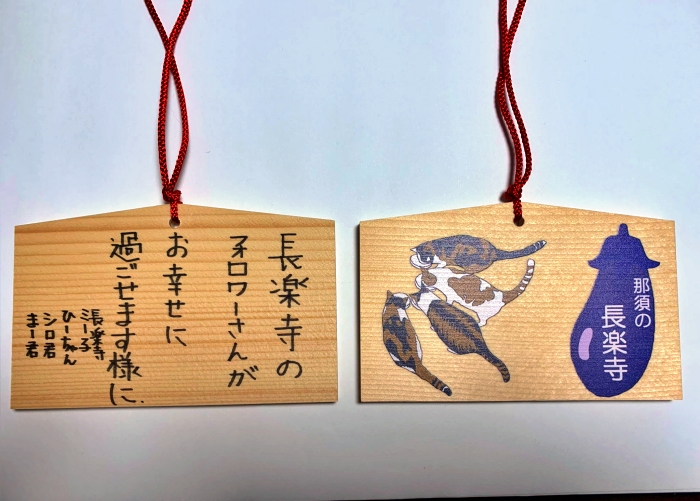 長楽寺の
フォロワーさんが
お幸せに
過ごせます様に.
長楽寺
ミーる
ひーちゃん
シロ君
まー君
那須の
長楽寺